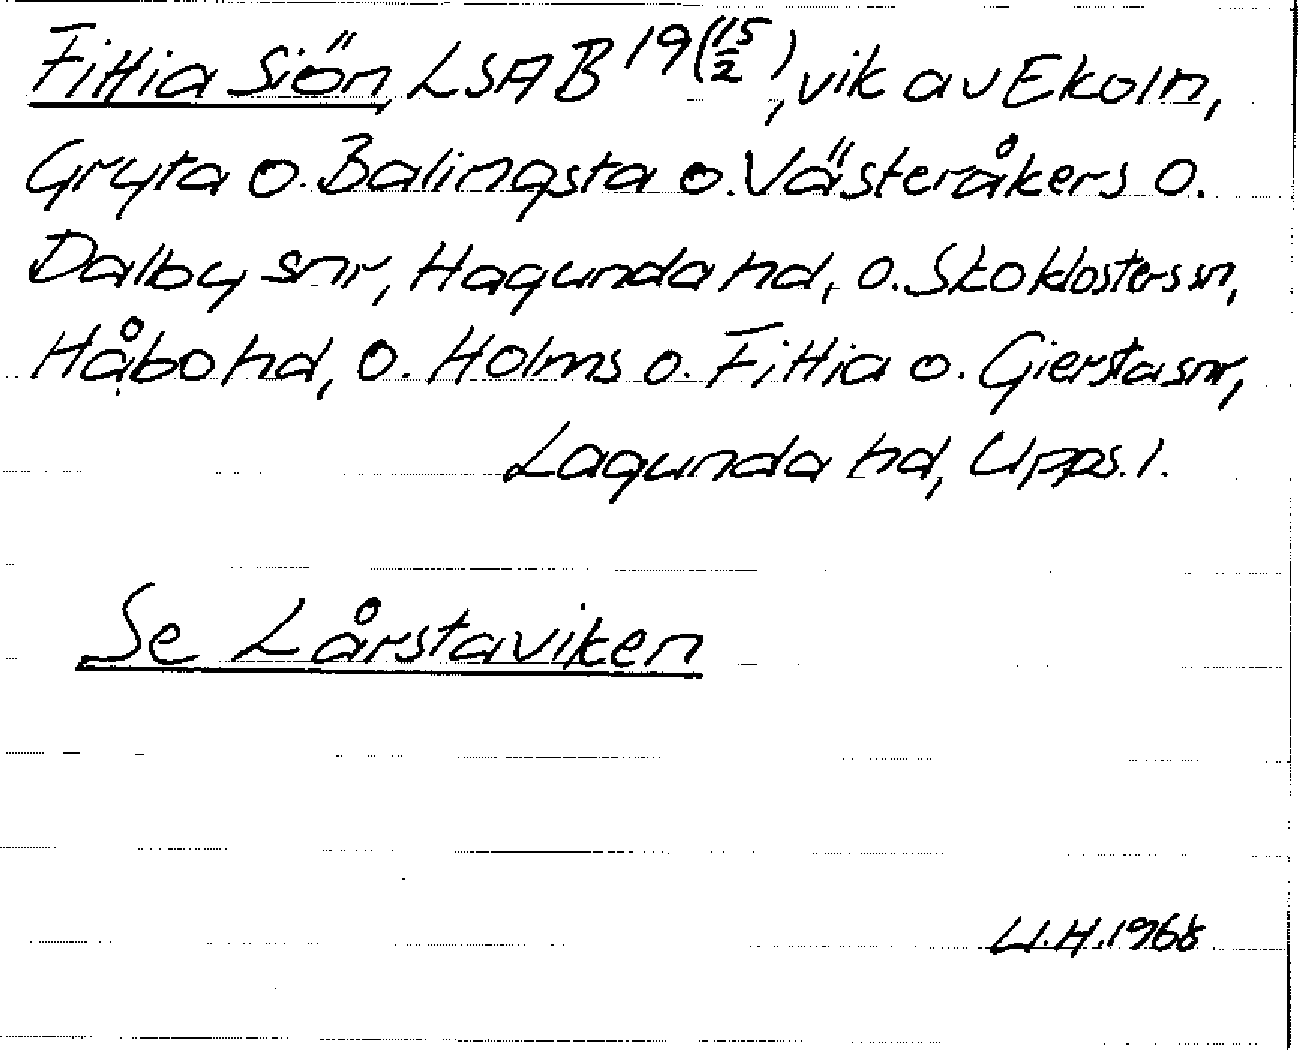 Fittia Siön, LSA B 19 (15/2), vik av Ekoln,
Gryta o. Balingsta o. Västeråkers o.
Dalby snr, Hagunda hd, o. Skoklosters sn,
Håbo hd, o. Holms o. Fittia o. Giersta snr,
Lagunda hd, Upps. l.
Se Lårstaviken
U.H. 1968